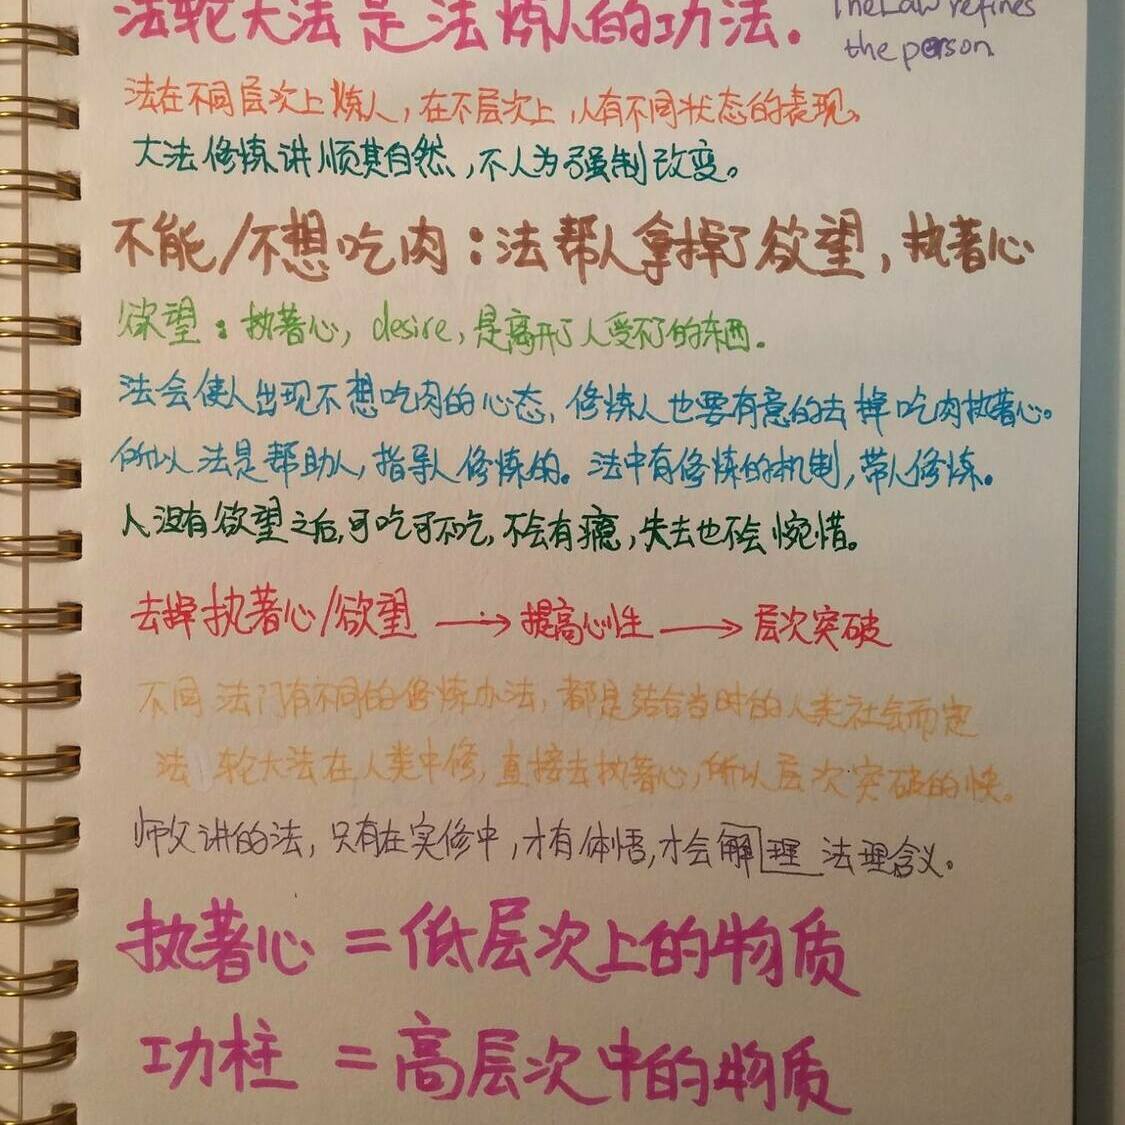 法轮大法是法炼人的功法.
The Law refines
the person
法在不同层次上炼人,在不层次上,人有不同状态的表现。
大法修炼讲顺其自然,不人为强制改变。
不能/不想吃肉:法帮人拿掉了欲望,执著心
欲望:执著心,desire,是离开了人受不了的东西.
法会使人出现不想吃肉的心态,修炼人也要有意的去掉吃肉执著心。
所以法是帮助人,指导人修炼的。法中有修炼的机制,带人修炼。
人没有欲望之后,可吃可不吃,不会有瘾,失去也不会惋惜。
去掉执著心/欲望 → 提高心性 → 层次突破
不同法门有不同的修炼办法,都是结合当时的人类社会而定
法轮大法在人类中修,直接去执著心,所以层次突破的快。
师父讲的法,只有在实修中,才有体悟,才会解理法理含义。
执著心=低层次上的物质
功柱=高层次中的物质